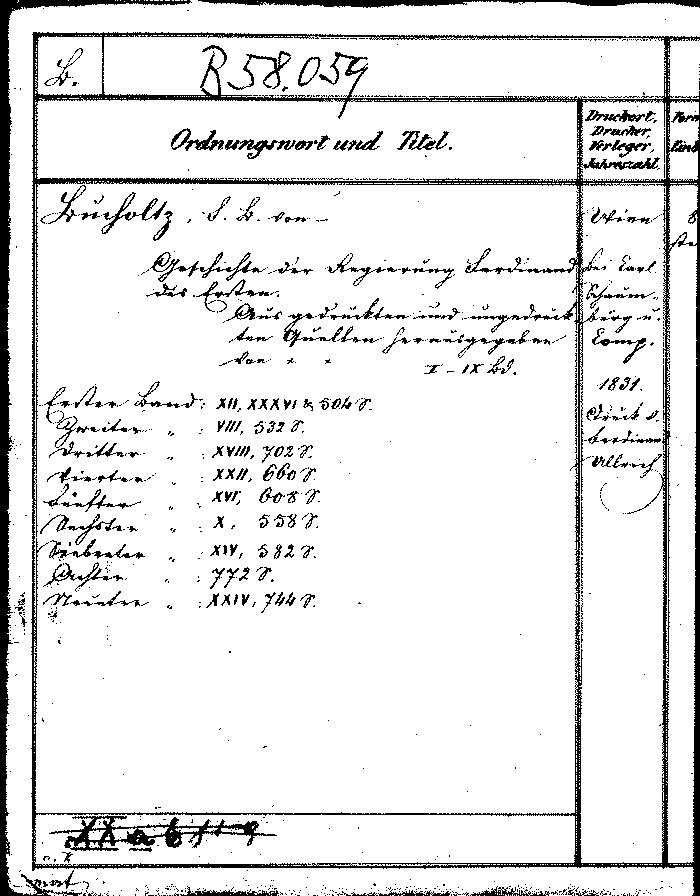 B.
B 58.059
Ordnungswort und Titel.
Druckort,
Drucker,
Verleger,
Jahreszahl.
Bucholtz, F. B. von –
Geschichte der Regierung Ferdinand
des Ersten.
Aus gedruckten und ungedruck-
ten Quellen herausgegeben
von " "
I – IX Bd.
Erster Band: XII, XXXVI & 504 S.
Zweiter " : VIII, 532 S.
Dritter " : XVIII, 702 S.
Vierter " : XXII, 660 S.
Fünfter " : XVI, 608 S.
Sechster " : X, 558 S.
Siebenter " : XIV, 582 S.
Achter " : 772 S.
Neunter " : XXIV, 744 S.
Wien
bei Carl
Schaum-
burg u.
Comp.
1831.
Druck v.
Ferdinand
Ullrich